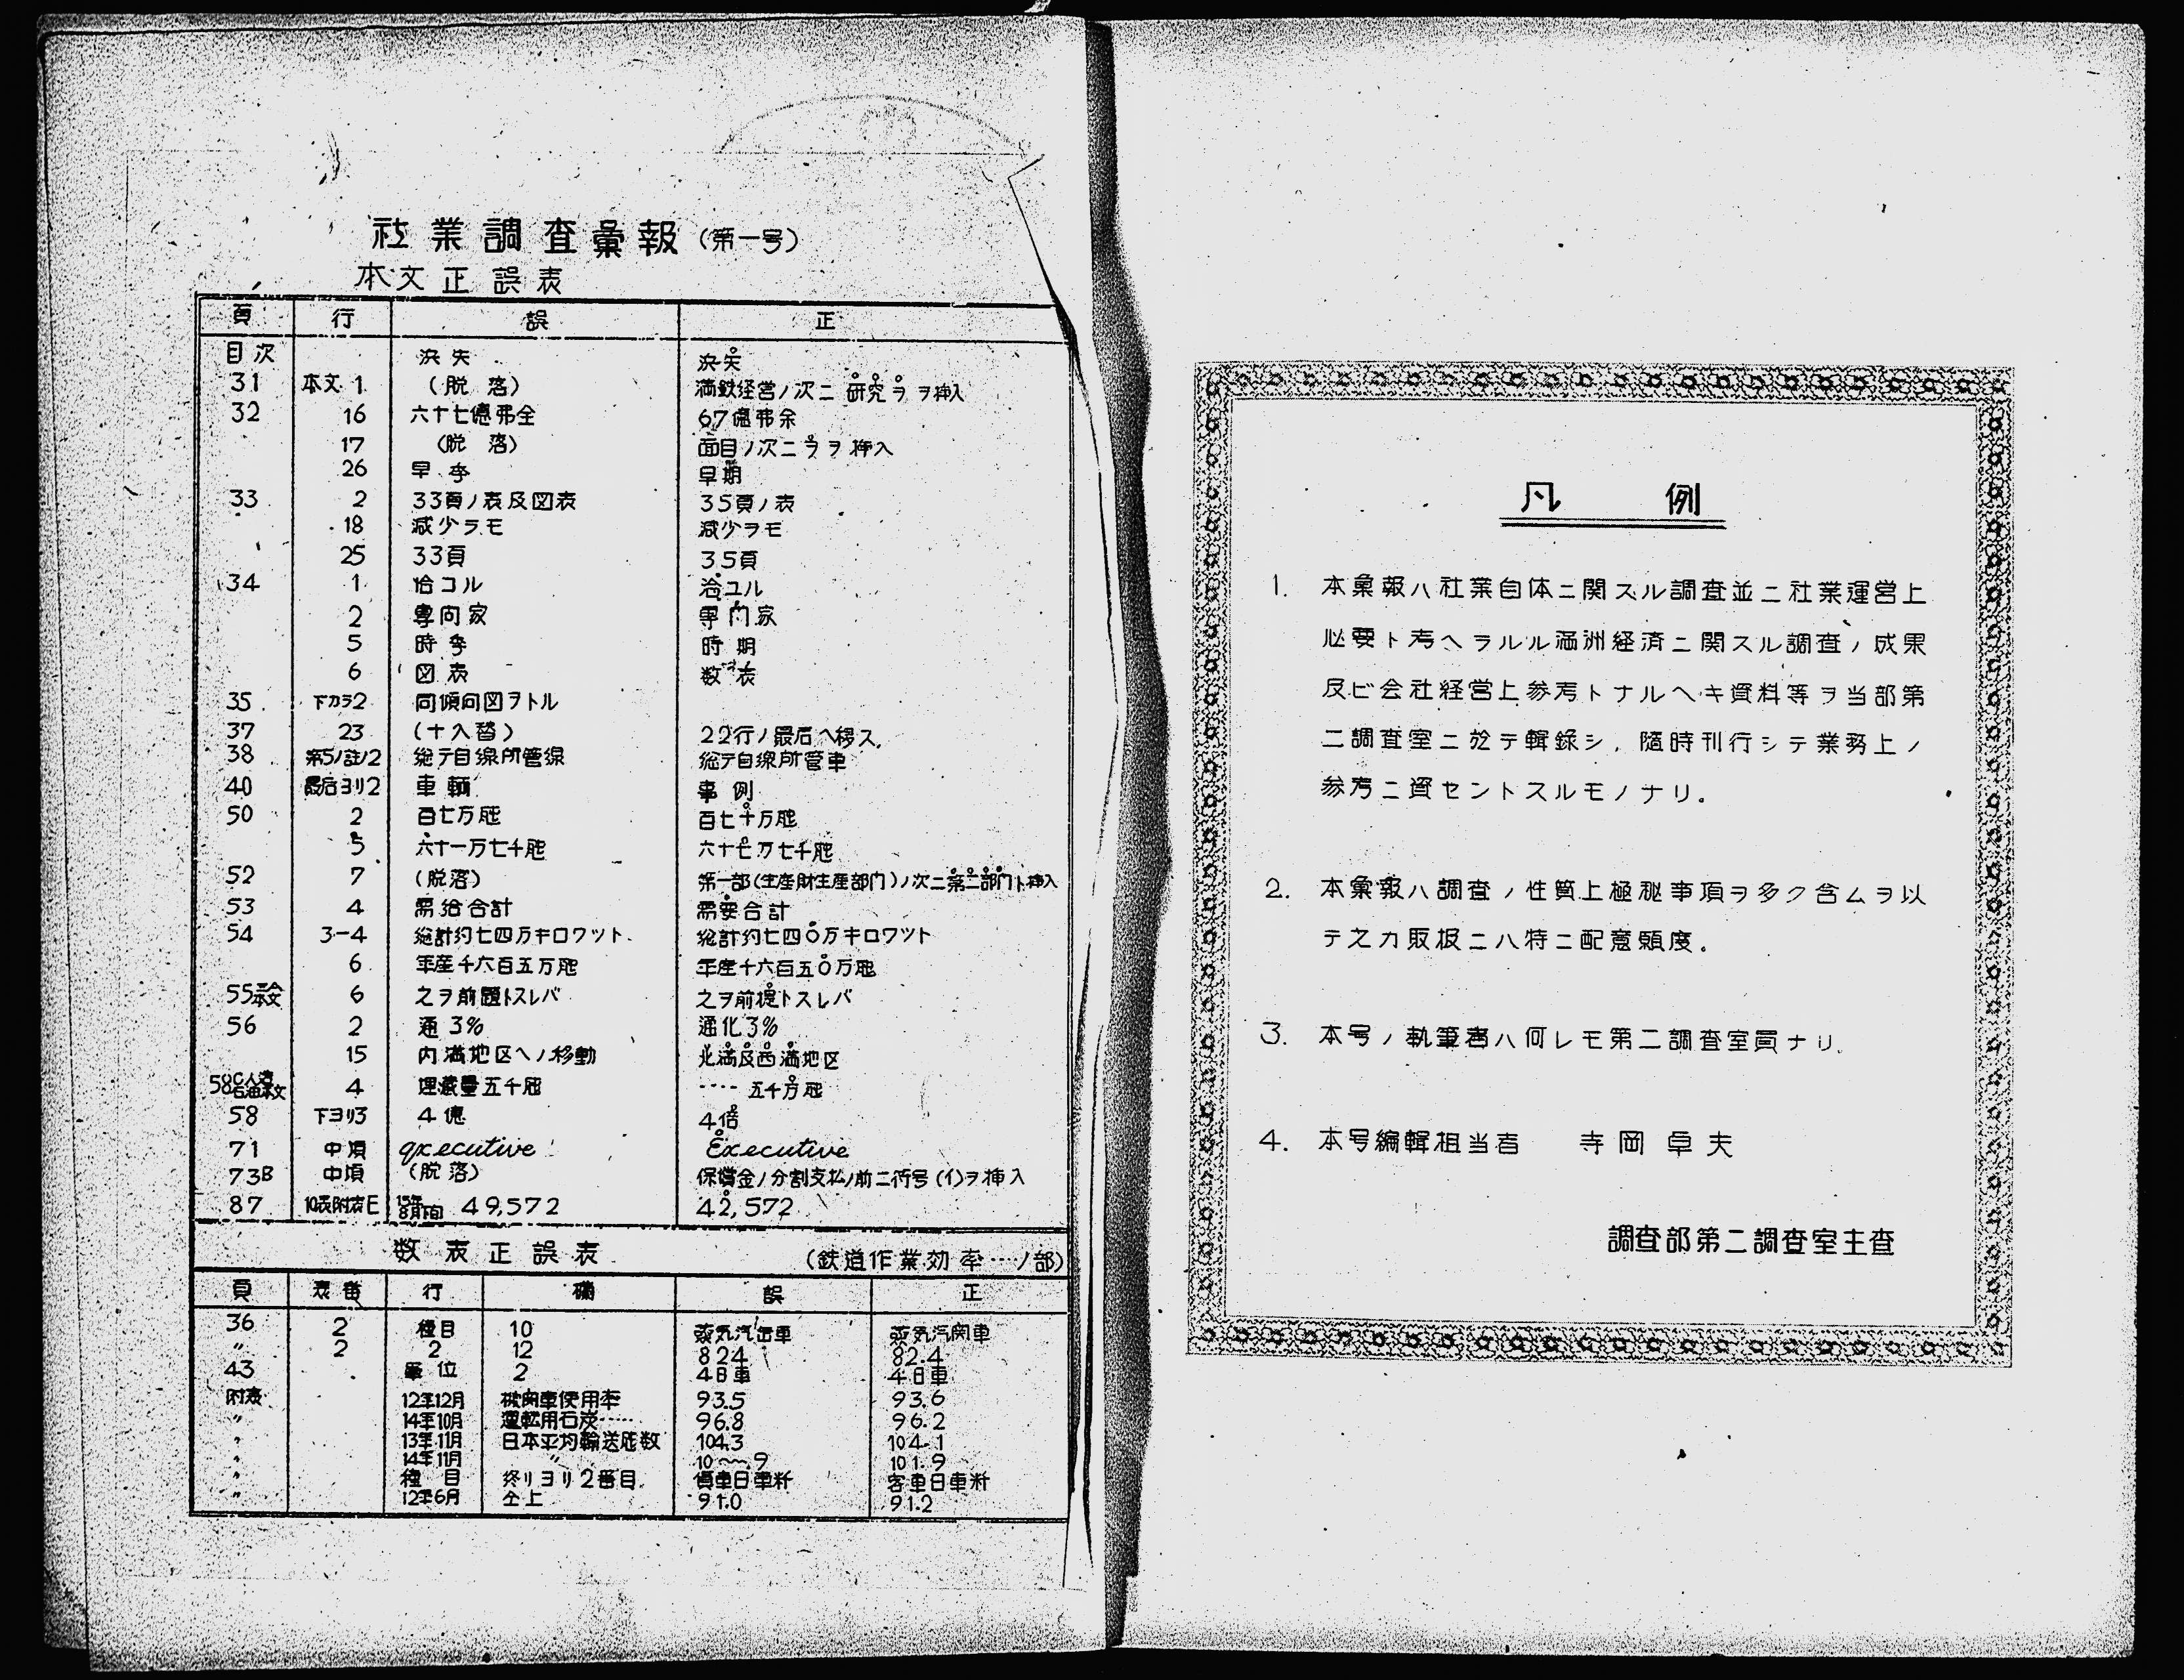 社業調査彙報(第一号)
本文正誤表
頁 行 誤 正
目次 決矢 決矢
31 本文1 (脱 落) 満鉄経営ノ次ニ研究ラヲ挿入
32 16 六十七億弗全 67億弗余
17 (脱 落) 面目ノ次ニラヲ挿入
26 早季 早期
33 2 33頁ノ表及図表 35頁ノ表
18 減少ラモ 減少ヲモ
25 33頁 35頁
34 1 恰コル 洽ユル
2 専向家 専門家
5 時季 時期
6 図表 数表
35 下カラ2 同傾向図ヲトル
37 23 (十入替) 22行ノ最后ヘ移ス.
38 第5ノ註ノ2 総テ自線所管線 総テ自線所管車
40 最后ヨリ2 車輛 事例
50 2 百七万瓲 百七十万瓲
5 六十一万七千瓲 六十七万七千瓲
52 7 (脱落) 第一部(生産財生産部門)ノ次ニ第二部門ト挿入
53 4 需給合計 需要合計
54 3-4 総計約七四万キロワット. 総計約七四〇万キロワット
6 年産千六百五万瓲 年産千六百五〇万瓲
55 本文 6 之ヲ前題トスレバ 之ヲ前提トスレバ
56 2 通3% 通化3%
15 内満地区ヘノ移動 北満及西満地区
58 石油本文 4 埋蔵量五千瓲 ‥‥五千万瓲
58 下ヨリ3 4億 4倍
71 中項 qxecutive Executive
73B 中項 (脱落) 保償金ノ分割支払ノ前ニ符号(イ)ヲ挿入
87 10表附表E 15年8月下旬 49,572 42,572
数表正誤表 (鉄道作業効率‥‥ノ部)
頁 表番 行 欄 誤 正
36 2 種目 10 蒸気汽缶車 蒸気汽関車
〃 2 2 12 824 82.4
43 単位 2 4日車 4日車
附表 12年12月 機関車使用率 93.5 93.6
〃 14年10月 運転用石炭‥‥ 96.8 96.2
〃 13年11月 日本平均輸送瓲数 104.3 104.1
〃 14年11月 〃 10〜.9 101.9
〃 種目 終リヨリ2番目. 貨車日車粁 客車日車粁
〃 12年6月 仝上 91.0 91.2
凡 例
1. 本彙報ハ社業自体ニ関スル調査並ニ社業運営上
必要ト考ヘラルル満洲経済ニ関スル調査ノ成果
及ビ会社経営上参考トナルヘキ資料等ヲ当部第
二調査室ニ於テ輯録シ,随時刊行シテ業務上ノ
参考ニ資セントスルモノナリ。
2. 本彙報ハ調査ノ性質上極秘事項ヲ多ク含ムヲ以
テ之カ取扱ニハ特ニ配意願度。
3. 本号ノ執筆者ハ何レモ第二調査室員ナリ.
4. 本号編輯担当者 寺岡卓夫
調査部第二調査室主査